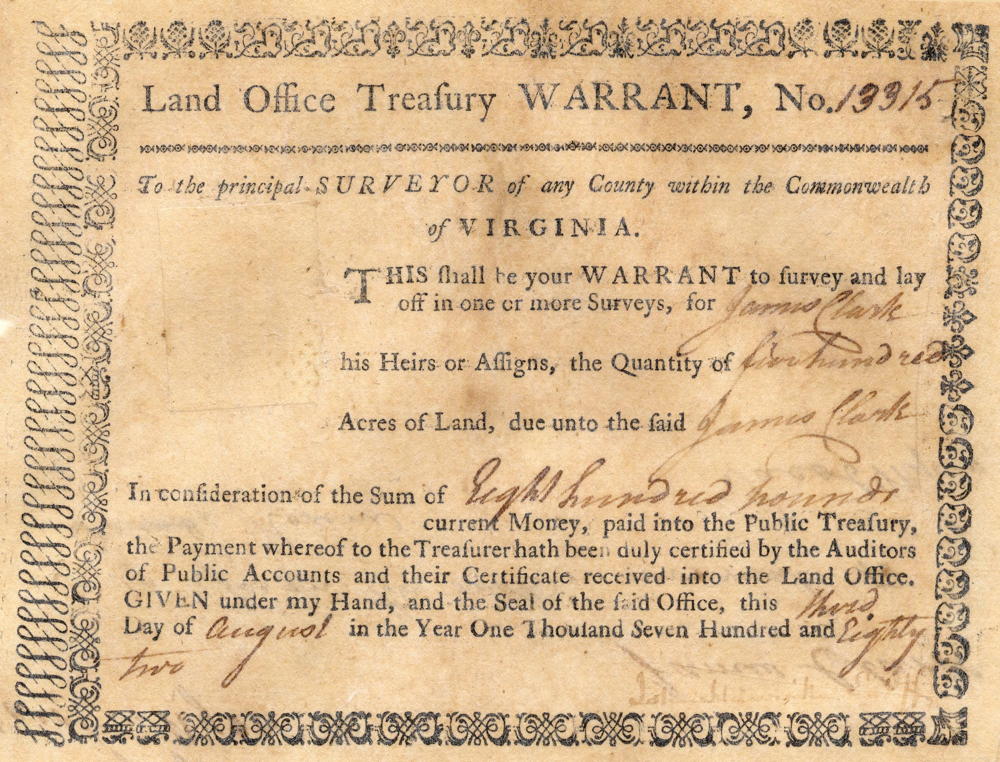 Land Office Treaſury WARRANT, No. 13315
To the principal SURVEYOR of any County within the Commonwealth
of VIRGINIA.
THIS ſhall be your WARRANT to ſurvey and lay
off in one or more Surveys, for James Clark
his Heirs or Aſſigns, the Quantity of five hundred
Acres of Land, due unto the ſaid James Clark
In conſideration of the Sum of Eight hundred pounds
current Money, paid into the Public Treaſury,
the Payment whereof to the Treaſurer hath been duly certified by the Auditors
of Public Accounts and their Certificate received into the Land Office.
GIVEN under my Hand, and the Seal of the ſaid Office, this third
Day of August in the Year One Thouſand Seven Hundred and Eighty
two